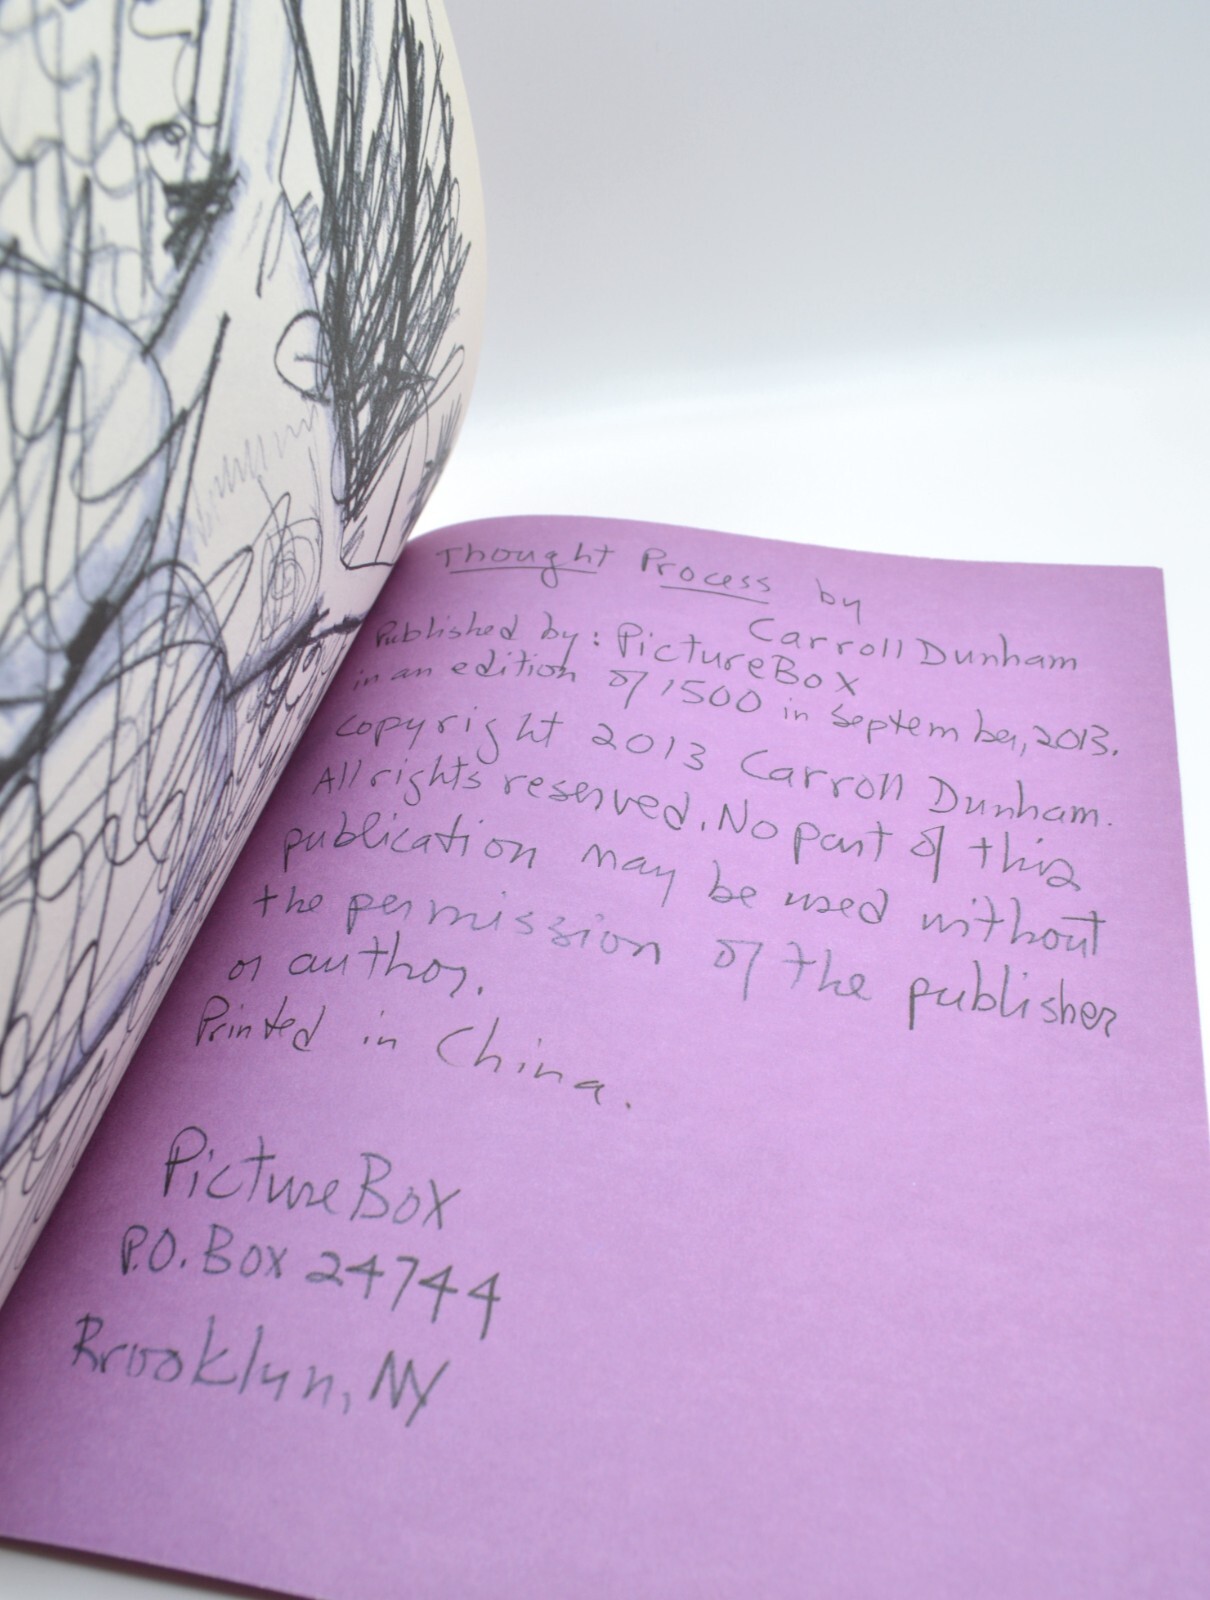 Thought Process by
Carroll Dunham
Published by: PictureBox
in an edition of 1500 in September, 2013.
Copyright 2013 Carroll Dunham.
All rights reserved. No part of this
publication may be used without
the permission of the publisher
or author.
Printed in China.
PictureBox
P.O. Box 24744
Brooklyn, NY